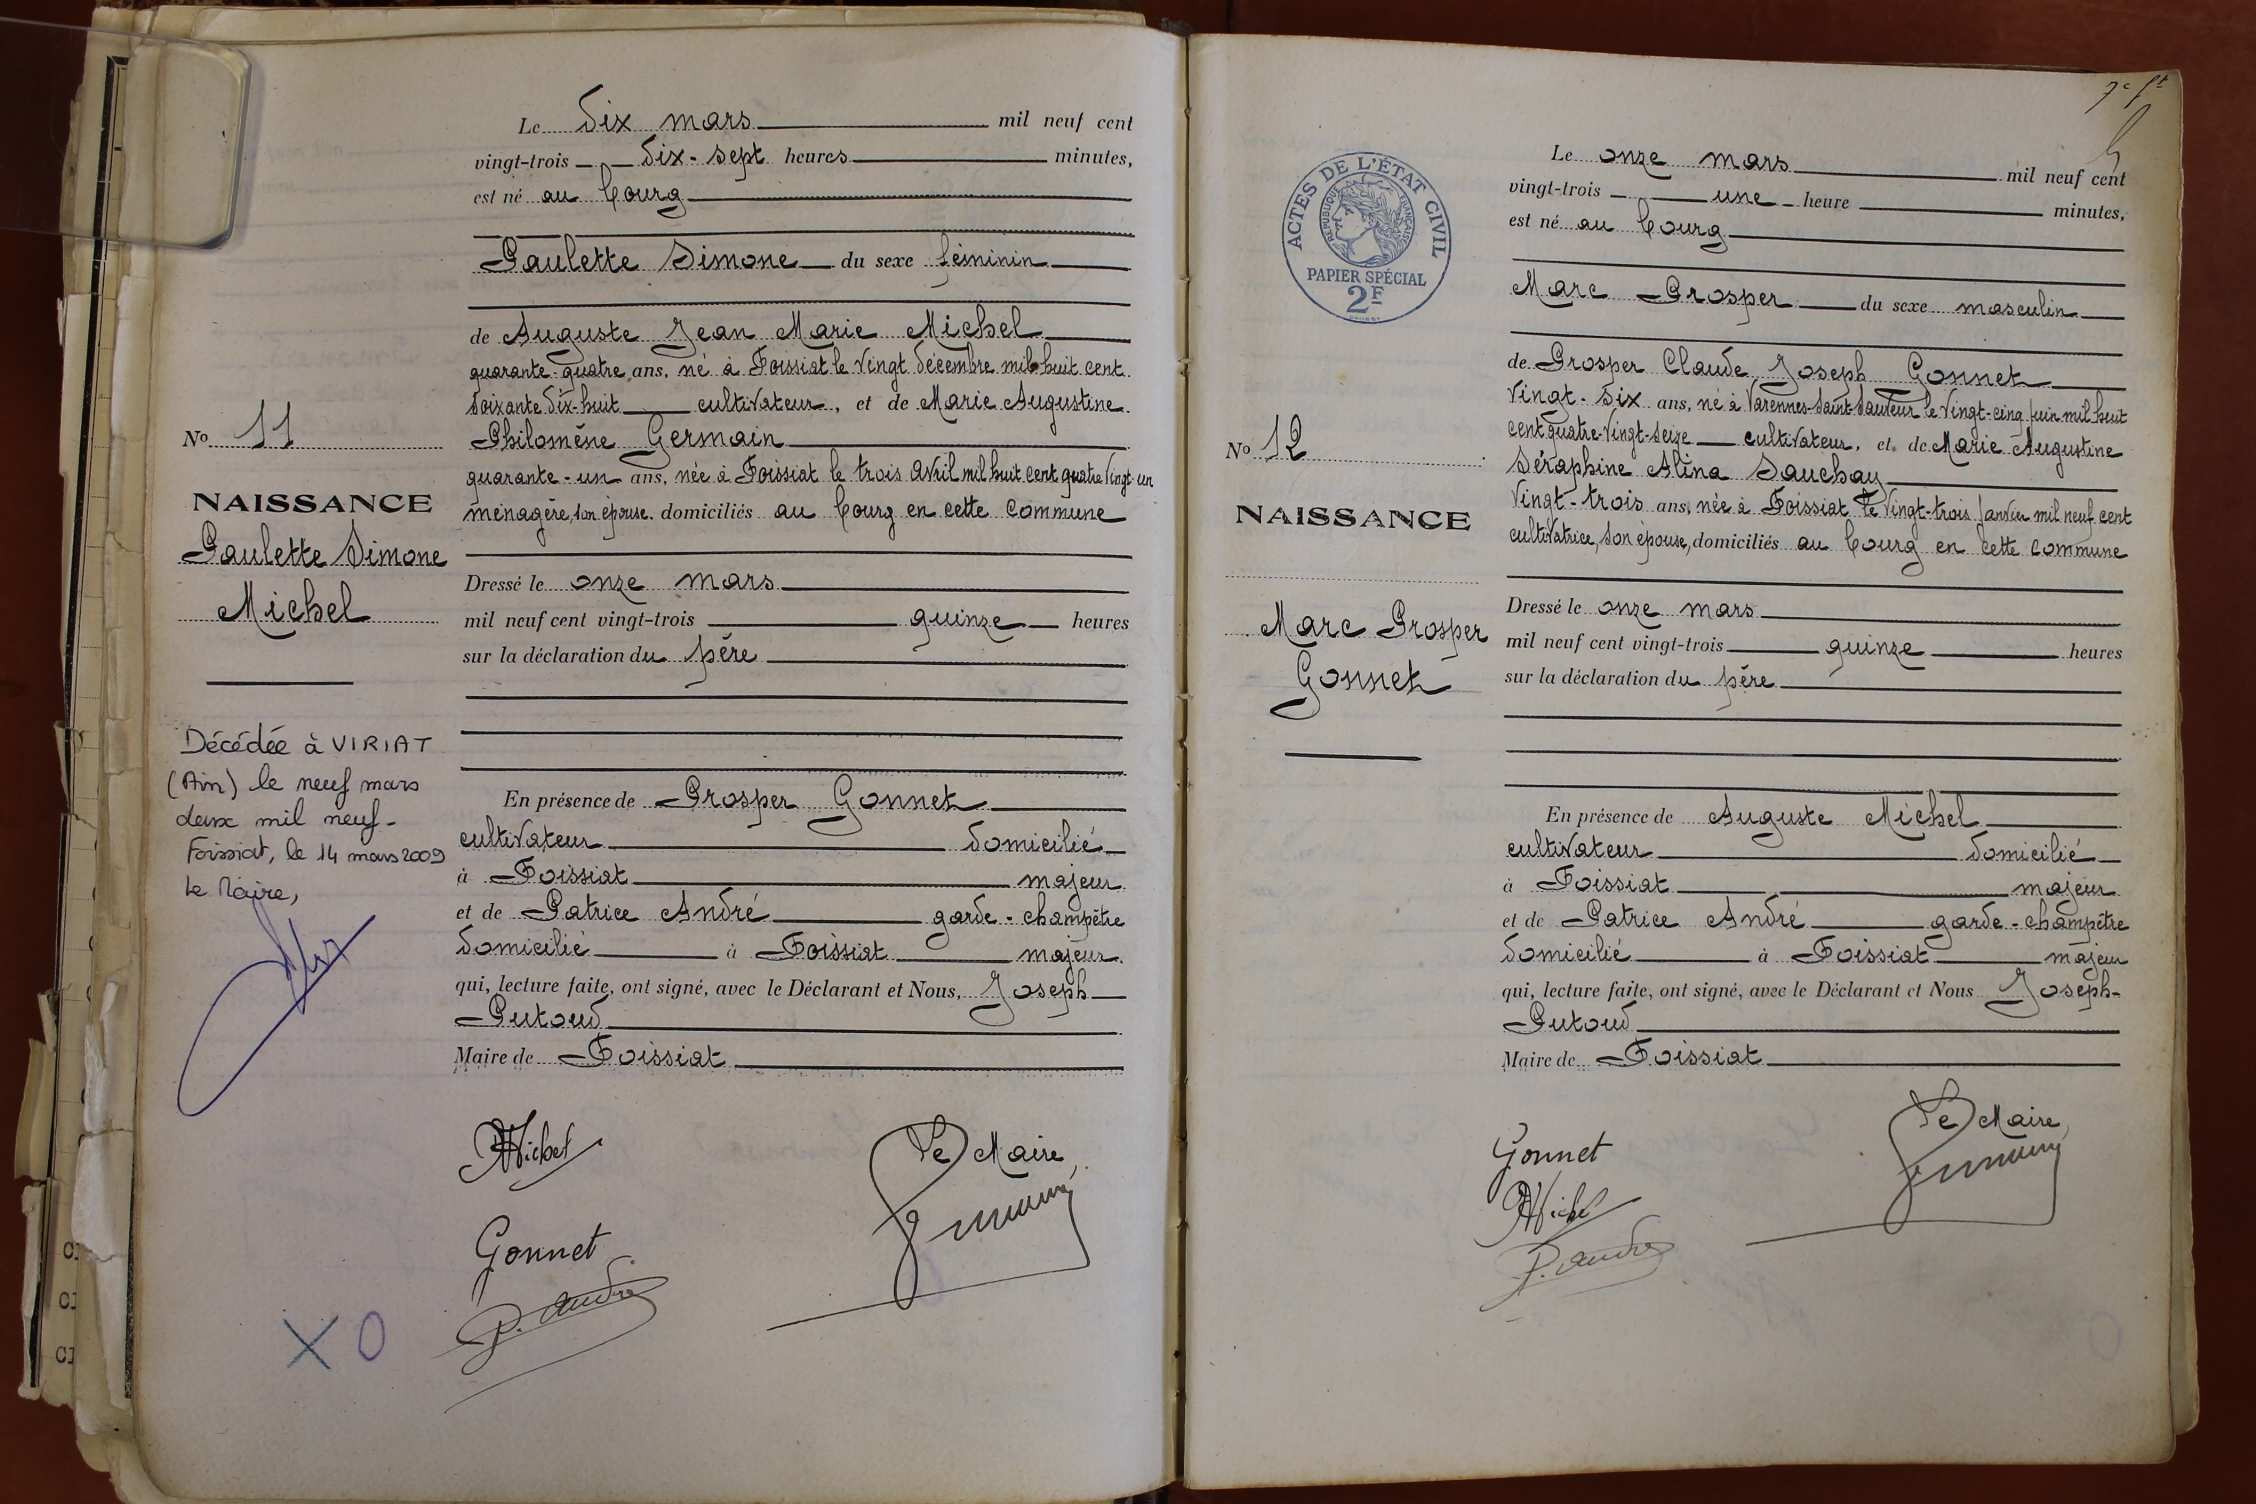 Le dix mars mil neuf cent
vingt-trois dix-sept heures minutes,
est né au bourg
Paulette Simone du sexe féminin
de Auguste Jean Marie Michel
quarante-quatre ans, né à Foissiat le vingt décembre mil huit cent
soixante dix-huit cultivateur, et de Marie Augustine
Philomène Germain
quarante-un ans, née à Foissiat le trois avril mil huit cent quatre vingt un
ménagère, son épouse. domiciliés au bourg en cette commune
Dressé le onze mars
mil neuf cent vingt-trois quinze heures
sur la déclaration du père
En présence de Prosper Gonnet
cultivateur domicilié
à Foissiat majeur
et de Patrice André garde-champêtre
domicilié à Foissiat majeur
qui, lecture faite, ont signé, avec le Déclarant et Nous, Joseph
Putoud
Maire de Foissiat
AMichel
Le Maire,
Gonnet
P. André
No 11
NAISSANCE
Paulette Simone
Michel
Décédée à VIRIAT
(Ain) le neuf mars
deux mil neuf-
Foissiat, le 14 mars 2009
Le Maire,
X O
7e ft
ACTES DE L'ÉTAT CIVIL
RÉPUBLIQUE FRANÇAISE
PAPIER SPÉCIAL
2F
No 12
NAISSANCE
Marc Prosper
Gonnet
Le onze mars mil neuf cent
vingt-trois une heure minutes,
est né au bourg
Marc Prosper du sexe masculin
de Prosper Claude Joseph Gonnet
vingt-six ans, né à Varennes-Saint-Sauveur le vingt-cinq juin mil huit
cent quatre-vingt-seize cultivateur, et de Marie Augustine
Séraphine Alina Sauchay
vingt-trois ans, née à Foissiat le vingt-trois janvier mil neuf cent
cultivatrice, son épouse, domiciliés au bourg en cette commune
Dressé le onze mars
mil neuf cent vingt-trois quinze heures
sur la déclaration du père
En présence de Auguste Michel
cultivateur domicilié
à Foissiat majeur
et de Patrice André garde-champêtre
domicilié à Foissiat majeur
qui, lecture faite, ont signé, avec le Déclarant et Nous Joseph-
Putoud
Maire de Foissiat
Le Maire,
Gonnet
AMichel
P. André